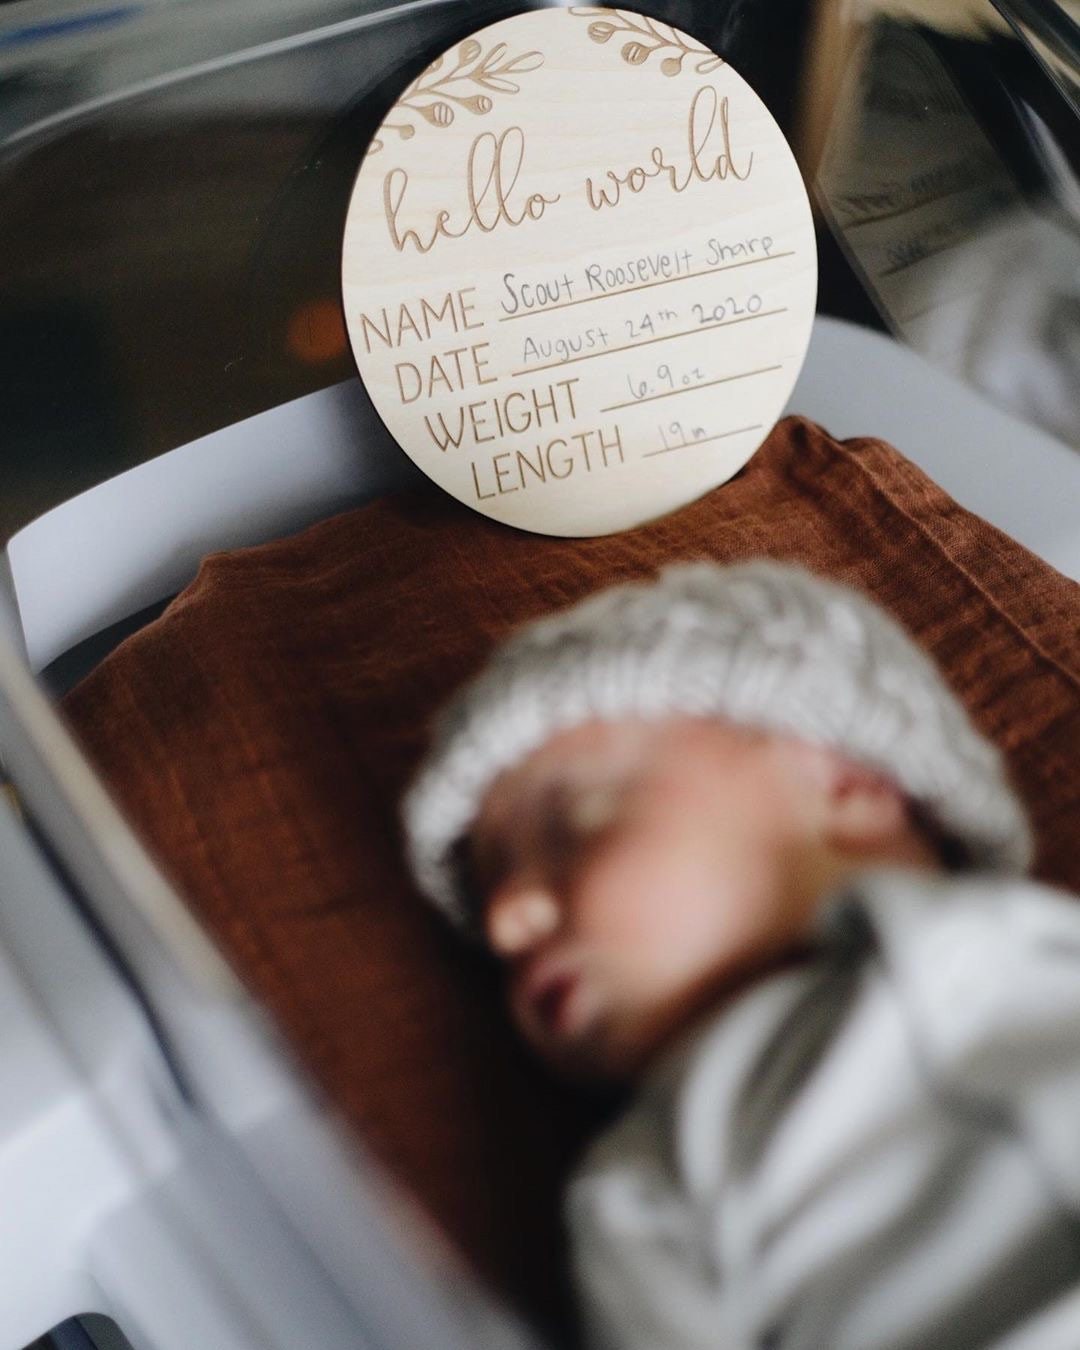 hello world
NAME Scout Roosevelt Sharp
DATE August 24th 2020
WEIGHT 6.9 oz
LENGTH 19in